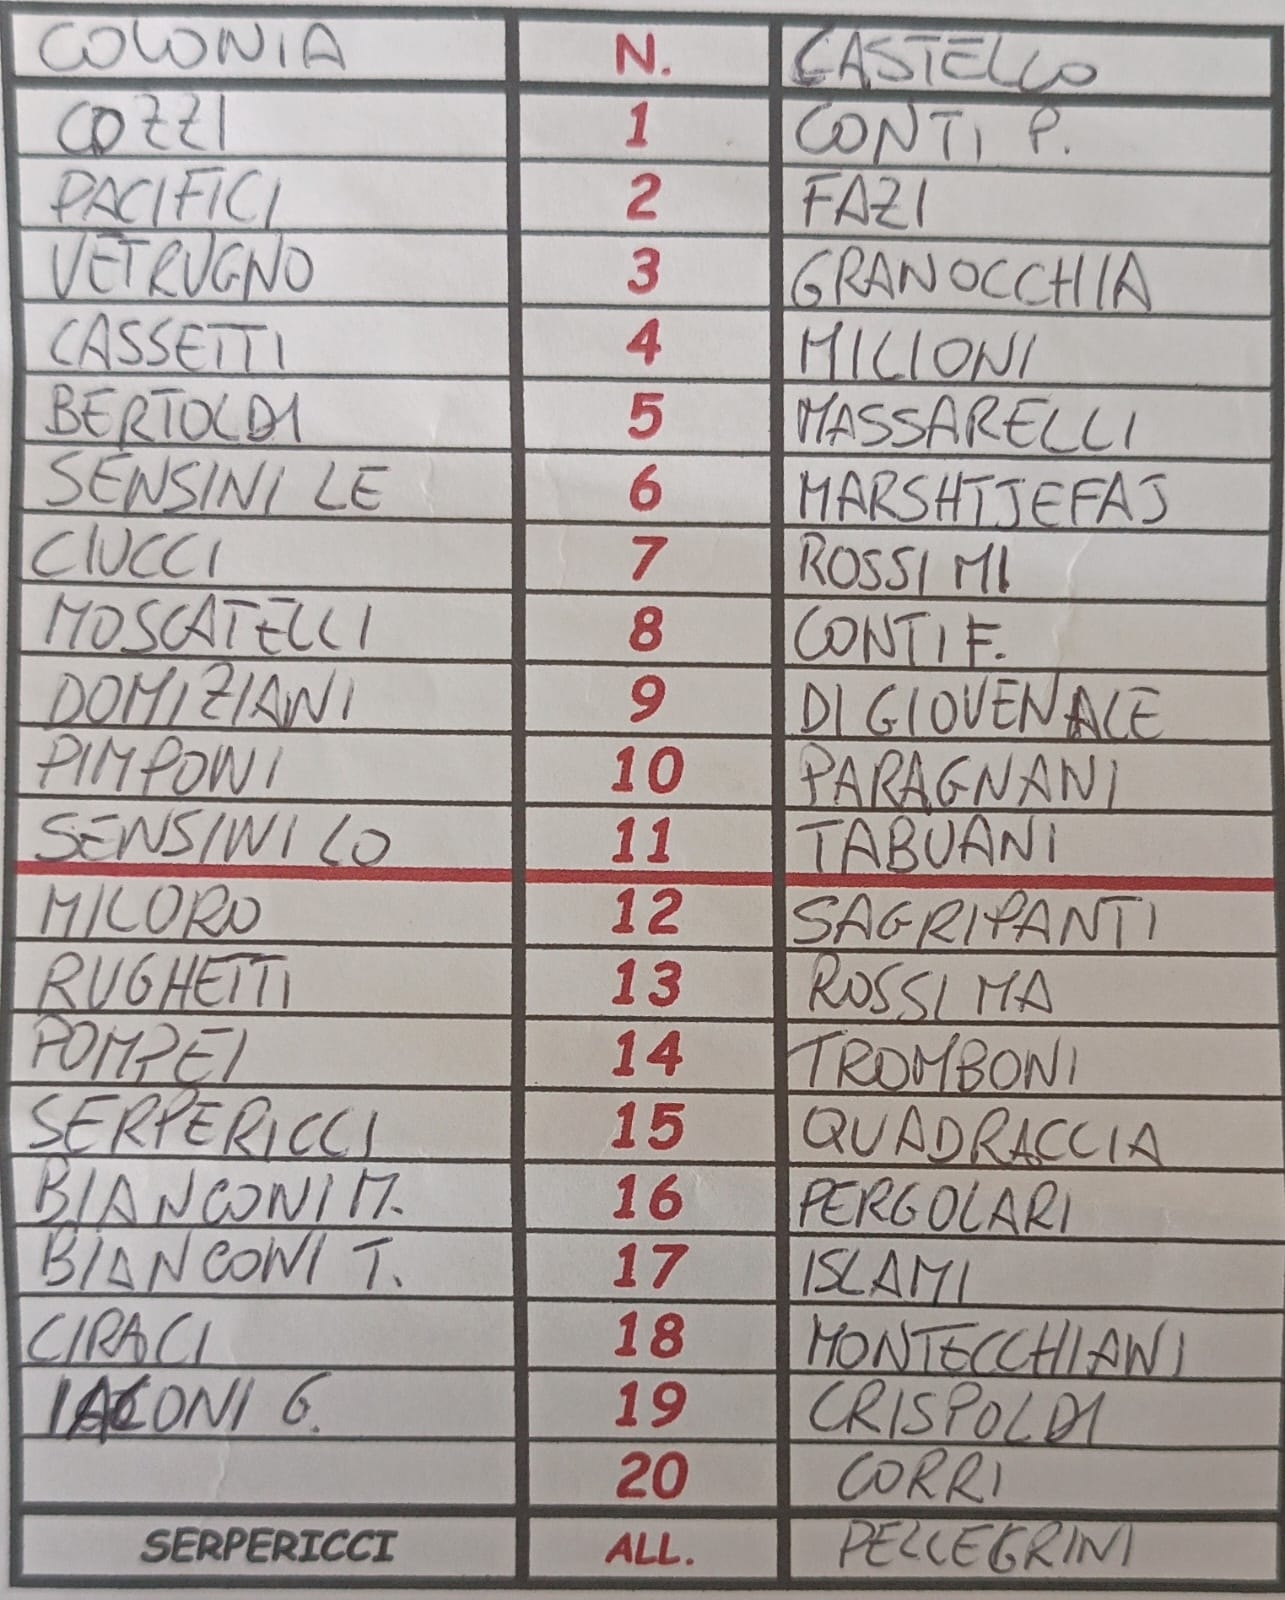 COLONIA N. CASTELLO
COZZI 1 CONTI P.
PACIFICI 2 FAZI
VETRUGNO 3 GRANOCCHIA
CASSETTI 4 MILIONI
BERTOLDI 5 MASSARELLI
SENSINI LE 6 MARSHTJEFAJ
CIUCCI 7 ROSSI MI
MOSCATELLI 8 CONTI F.
DOMIZIANI 9 DI GIOVENALE
PIMPONI 10 PARAGNANI
SENSINI LO 11 TABUANI
MILORO 12 SAGRIPANTI
RUGHETTI 13 ROSSI MA
POMPEI 14 TROMBONI
SERPERICCI 15 QUADRACCIA
BIANCONI M. 16 PERGOLARI
BIANCONI T. 17 ISLAMI
CIRACI 18 MONTECCHIANI
IACONI G. 19 CRISPOLDI
20 CORRI
SERPERICCI ALL. PELLEGRINI